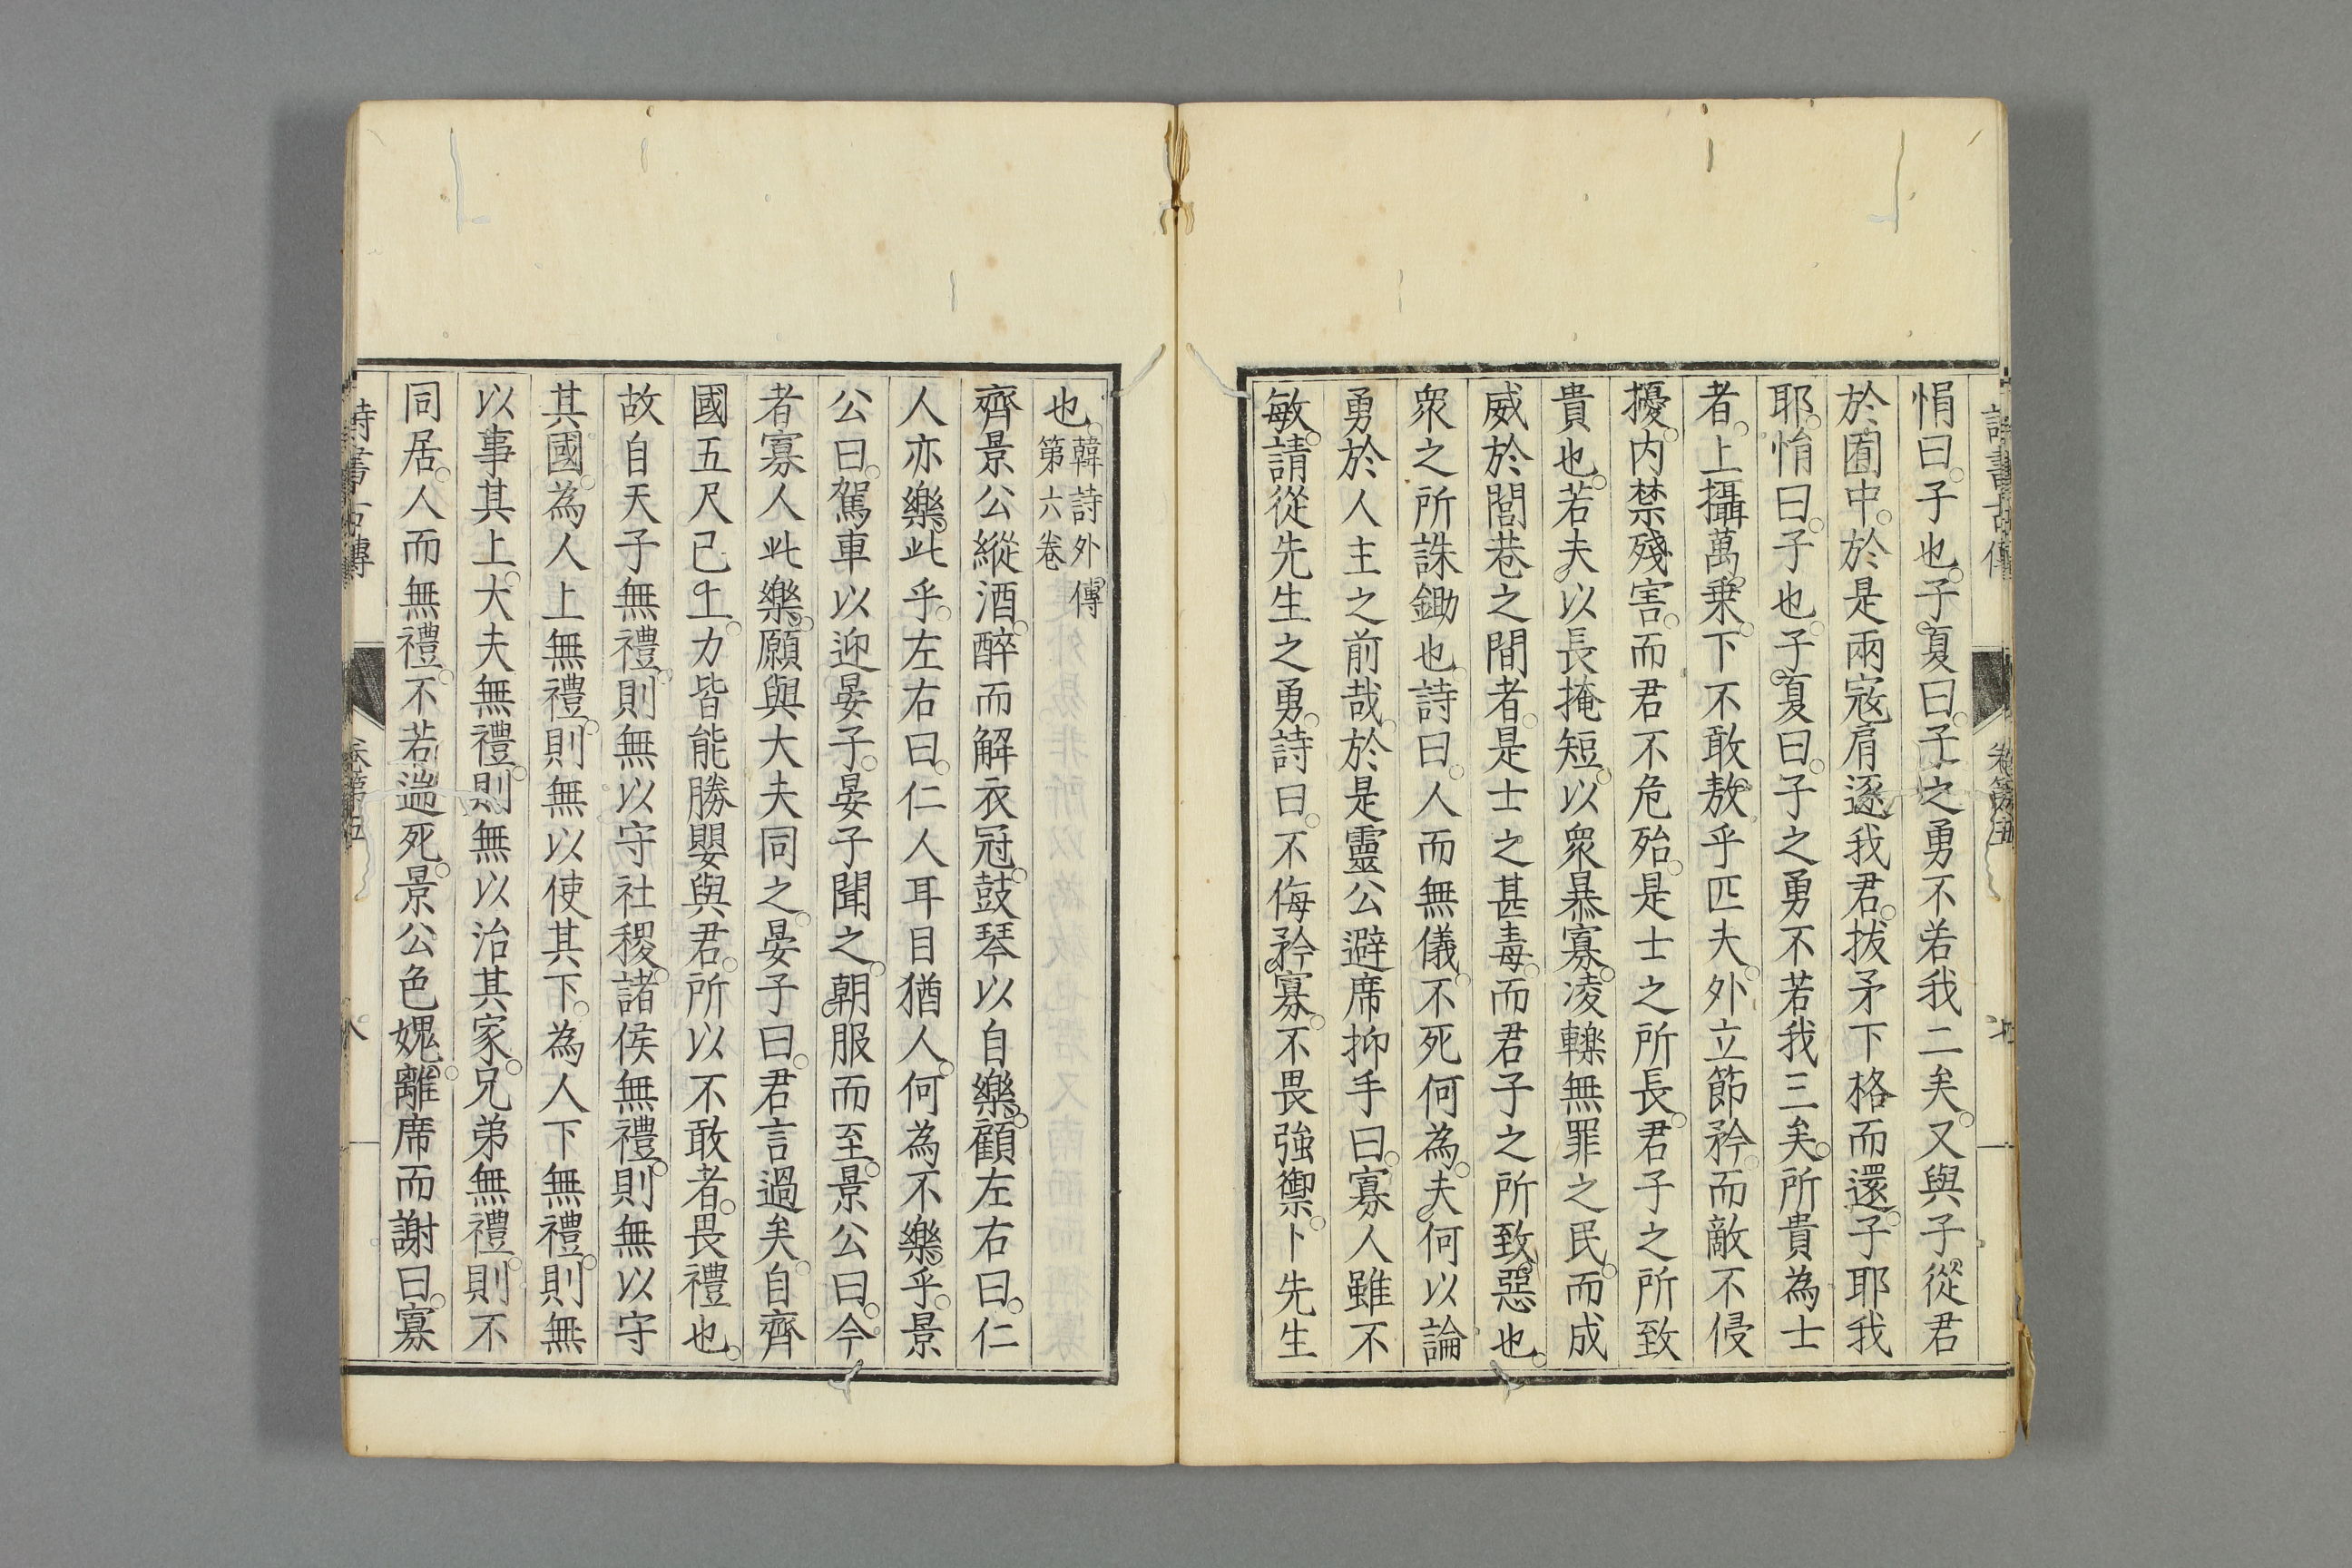 詩書古傳 卷第五
悁曰子也子夏曰子之勇不若我二矣又與子從君
於囿中於是兩寇肩逐我君拔矛下格而還子耶我
耶悁曰子也子夏曰子之勇不若我三矣所貴為士
者上攝萬乗下不敢敖乎匹夫外立節矜而敵不侵
擾内禁殘害而君不危殆是士之所長君子之所致
貴也若夫以長掩短以衆暴寡凌轢無罪之民而成
威於閭巷之間者是士之甚毒而君子之所致惡也
衆之所誅鋤也詩曰人而無儀不死何為夫何以論
勇於人主之前哉於是靈公避席抑手曰寡人雖不
敏請從先生之勇詩曰不侮矜寡不畏強禦卜先生
也韓詩外傳第六卷
齊景公縱酒醉而解衣冠鼓琴以自樂顧左右曰仁
人亦樂此乎左右曰仁人耳目猶人何為不樂乎景
公曰駕車以迎晏子晏子聞之朝服而至景公曰今
者寡人此樂願與大夫同之晏子曰君言過矣自齊
國五尺已上力皆能勝嬰與君所以不敢者畏禮也
故自天子無禮則無以守社稷諸侯無禮則無以守
其國為人上無禮則無以使其下為人下無禮則無
以事其上大夫無禮則無以治其家兄弟無禮則不
同居人而無禮不若遄死景公色媿離席而謝曰寡
詩書古傳 卷第五 八